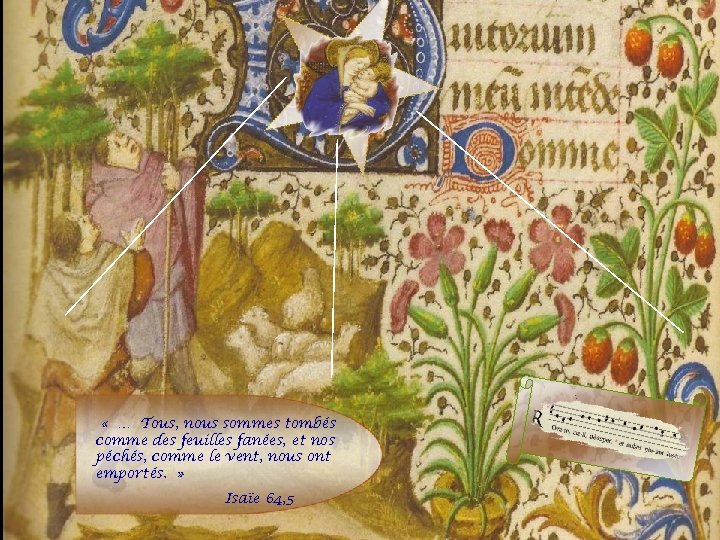 nitorium
meū intēde
Domine
« … Tous, nous sommes tombés
comme des feuilles fanées, et nos
péchés, comme le vent, nous ont
emportés. »
Isaïe 64,5
R